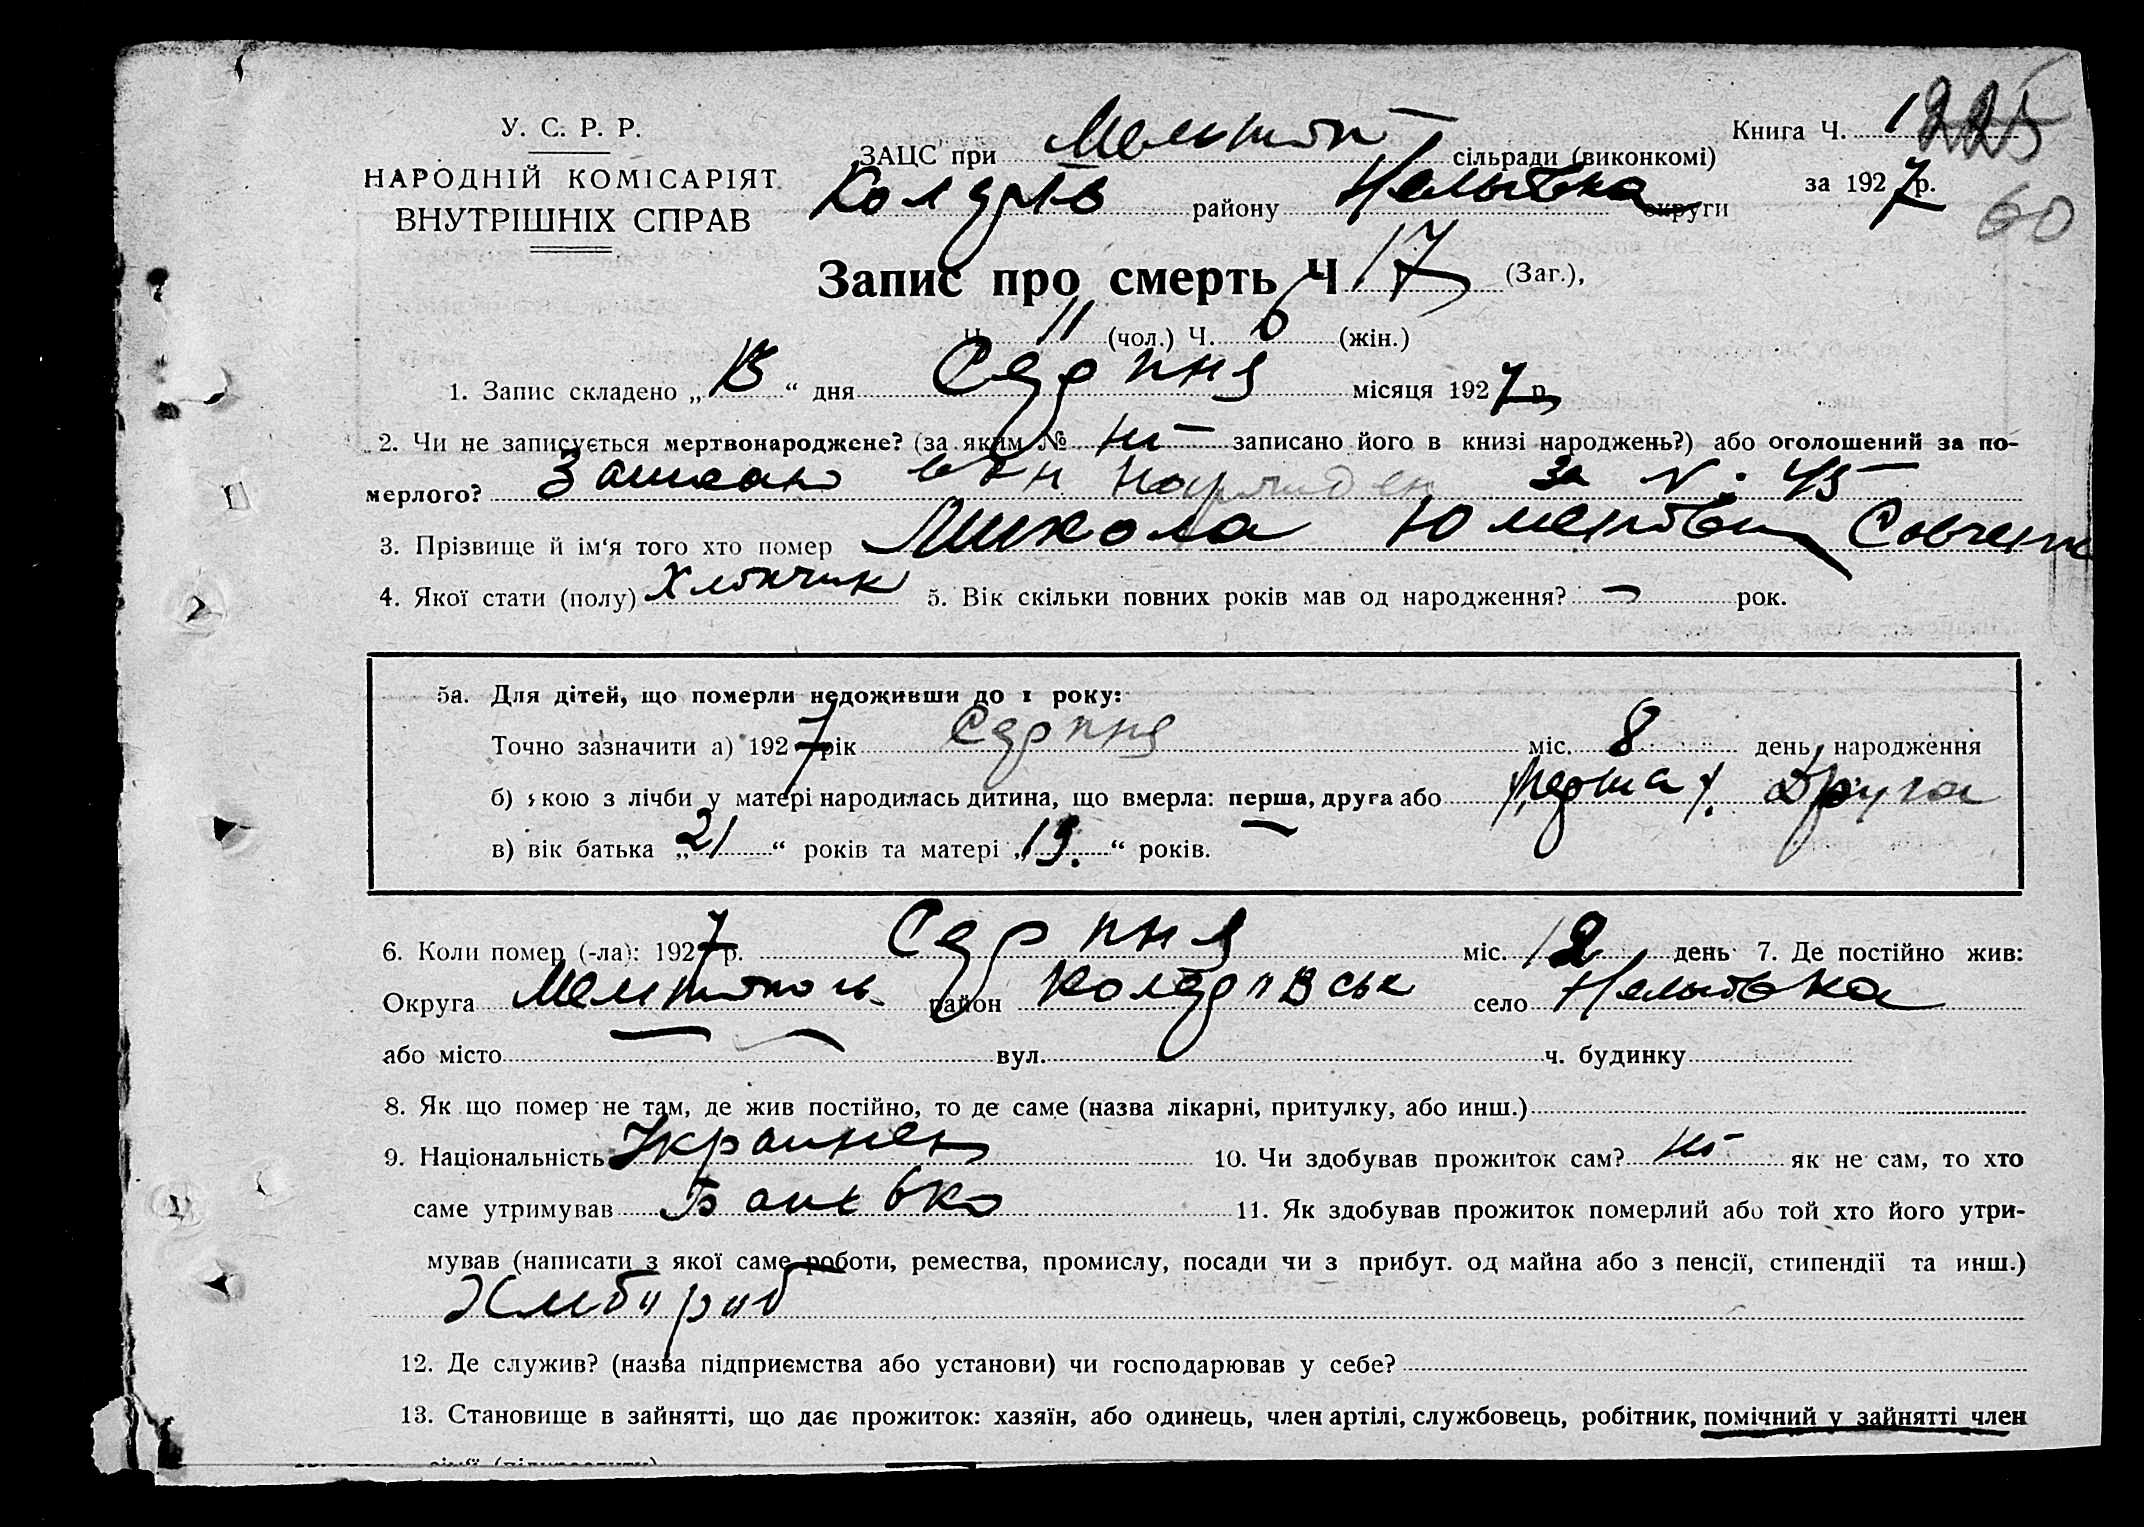 У. С. Р. Р.
НАРОДНІЙ КОМІСАРІЯТ
ВНУТРІШНІХ СПРАВ
Книга Ч. 1
225
ЗАЦС при сільради (виконкомі)
за 1927 р.
60
району округи
Запис про смерть Ч 17 (Заг.),
Ч. 11 (чол.) Ч. 6 (жін.)
1. Запис складено „ “ дня Серпня місяця 1927 р.
2. Чи не записується мертвонароджене? (за яким № ні записано його в книзі народжень?) або оголошений за по-
мерлого? за № 45
3. Прізвище й ім‘я того хто помер Микола
4. Якої стати (полу) Хлопчик 5. Вік скільки повних років мав од народження? — рок.
5а. Для дітей, що померли недоживши до 1 року:
Точно зазначити а) 1927 рік Серпня міс. 8 день народження
б) якою з лічби у матері народилась дитина, що вмерла: перша, друга або перша Друга
в) вік батька „21“ років та матері „19.“ років.
6. Коли помер (-ла): 1927 р. Серпня міс. 12 день 7. Де постійно жив:
Округа район село
або місто вул. ч. будинку
8. Як що помер не там, де жив постійно, то де саме (назва лікарні, притулку, або инш.)
9. Національність Украинец 10. Чи здобував прожиток сам? ні як не сам, то хто
саме утримував Батько 11. Як здобував прожиток померлий або той хто його утри-
мував (написати з якої саме роботи, ремества, промислу, посади чи з прибут. од майна або з пенсії, стипендії та инш.)
Хлібороб
12. Де служив? (назва підприємства або установи) чи господарював у себе?
13. Становище в зайнятті, що дає прожиток: хазяїн, або одинець, член артілі, службовець, робітник, помічний у зайнятті член